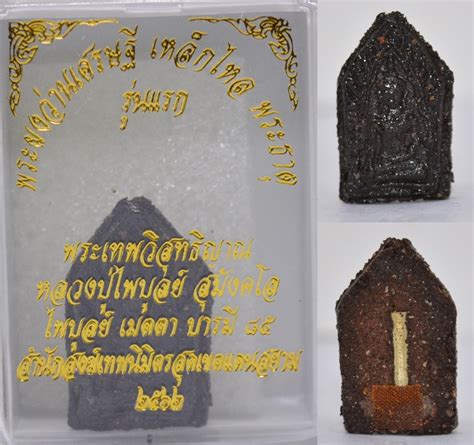 พระผงว่านเศรษฐี เหล็กไหล พระธาตุ
รุ่นแรก
พระเทพวิสุทธิญาณ
หลวงปู่ไพบูลย์ สุมังคโล
ไพบูลย์ เมตตา บารมี ๘๕
สำนักสงฆ์เทพนิมิตรสุดเขตแดนสยาม
๒๕๖๒